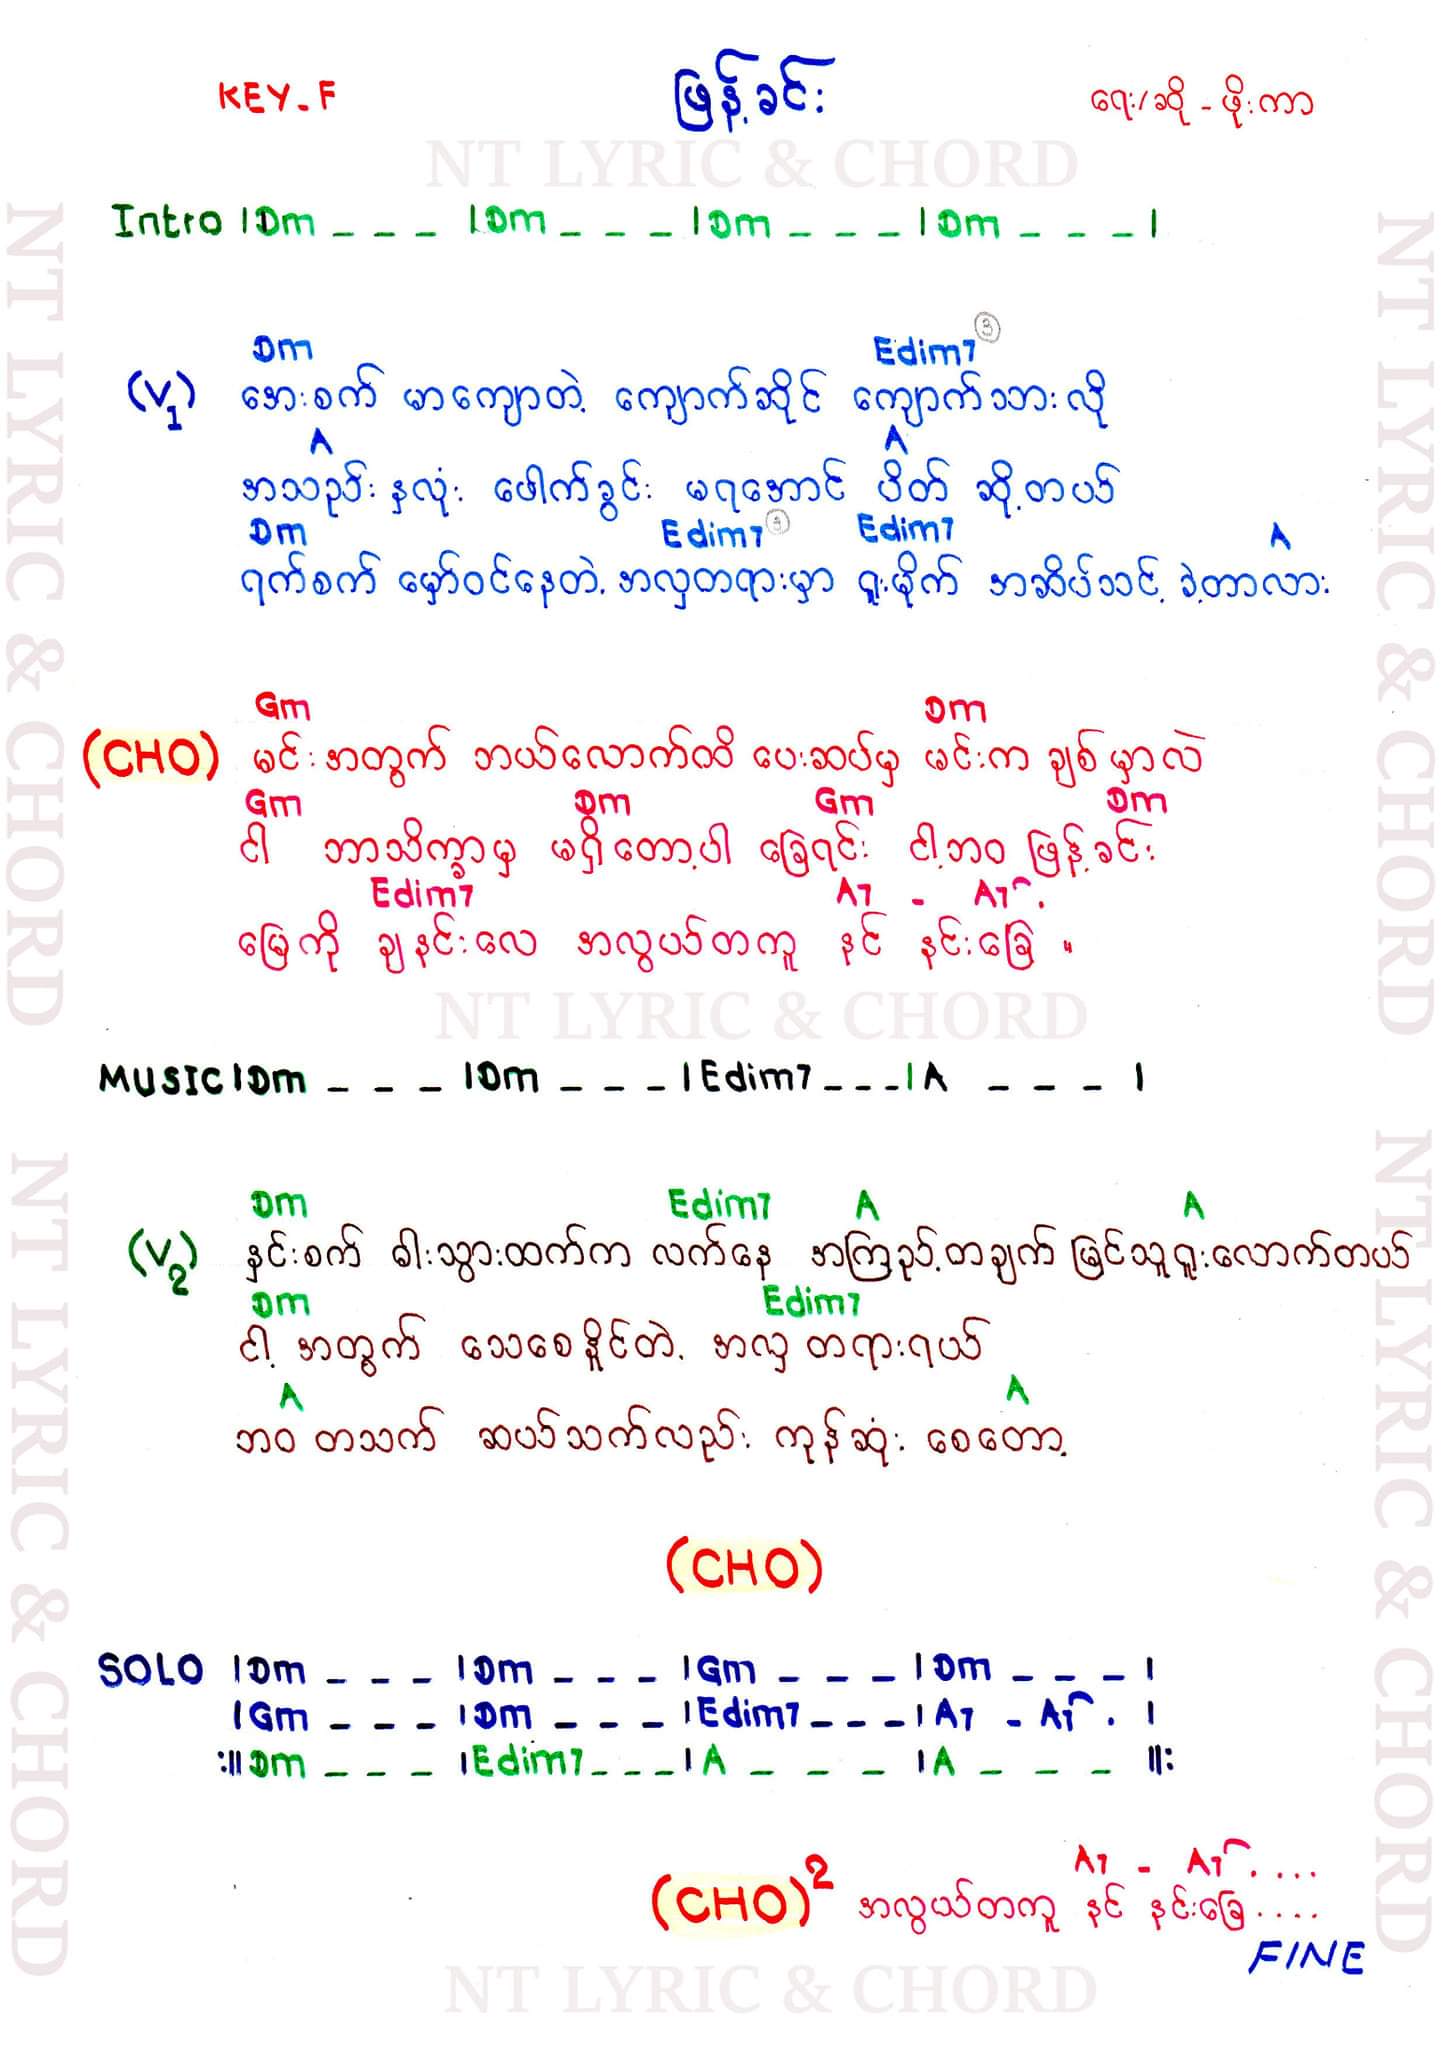 KEY-F ဖြန့်ခင်း ရေး/ဆို - ဖိုးကာ
NT LYRIC & CHORD
Intro |Dm _ _ _ |Dm _ _ _ |Dm _ _ _ |Dm _ _ _ |
Dm Edim7 ③
(V1) အေးစက် မာကျောတဲ့ ကျောက်ဆိုင် ကျောက်သားလို
A A
အသည်း နှလုံး ဖေါက်ခွင်း မရအောင် ပိတ် ဆို့တယ်
Dm Edim7 ③ Edim7 A
ရက်စက် မှော်ဝင်နေတဲ့ အလှတရားမှာ ရူးမိုက် အဆိပ်သင့် ခဲ့တာလား
Gm Dm
(CHO) မင်းအတွက် ဘယ်လောက်ထိ ပေးဆပ်မှ မင်းက ချစ်မှာလဲ
Gm Dm Gm Dm
ငါ ဘာသိက္ခာမှ မရှိတော့ပါ ခြေရင်း ငါ့ဘဝ ဖြန့်ခင်း
Edim7 A7 - A7 .
မြေကို ချနင်းလေ အလွယ်တကူ နင် နင်းခြေ ။
NT LYRIC & CHORD
MUSIC |Dm _ _ _ |Dm _ _ _ |Edim7 _ _ _ |A _ _ _ |
Dm Edim7 A A
(V2) နှင်းစက် ဓါးသွားထက်က လက်နေ အကြည့်တချက် မြင်သူရူးလောက်တယ်
Dm Edim7
ငါ့ အတွက် သေစေနိုင်တဲ့ အလှ တရားရယ်
A A
ဘဝ တသက် ဆယ်သက်လည်း ကုန်ဆုံး စေတော့
(CHO)
SOLO |Dm _ _ _ |Dm _ _ _ |Gm _ _ _ |Dm _ _ _ |
|Gm _ _ _ |Dm _ _ _ |Edim7 _ _ _ |A7 - A7 . |
:||Dm _ _ _ |Edim7 _ _ _ |A _ _ _ |A _ _ _ ||:
A7 - A7 ....
(CHO)2 အလွယ်တကူ နင် နင်းခြေ ....
FINE
NT LYRIC & CHORD
NT LYRIC & CHORD
NT LYRIC & CHORD
NT LYRIC & CHORD
NT LYRIC & CHORD